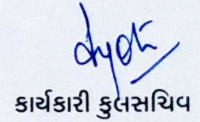 કાર્યકારી કુલસચિવ